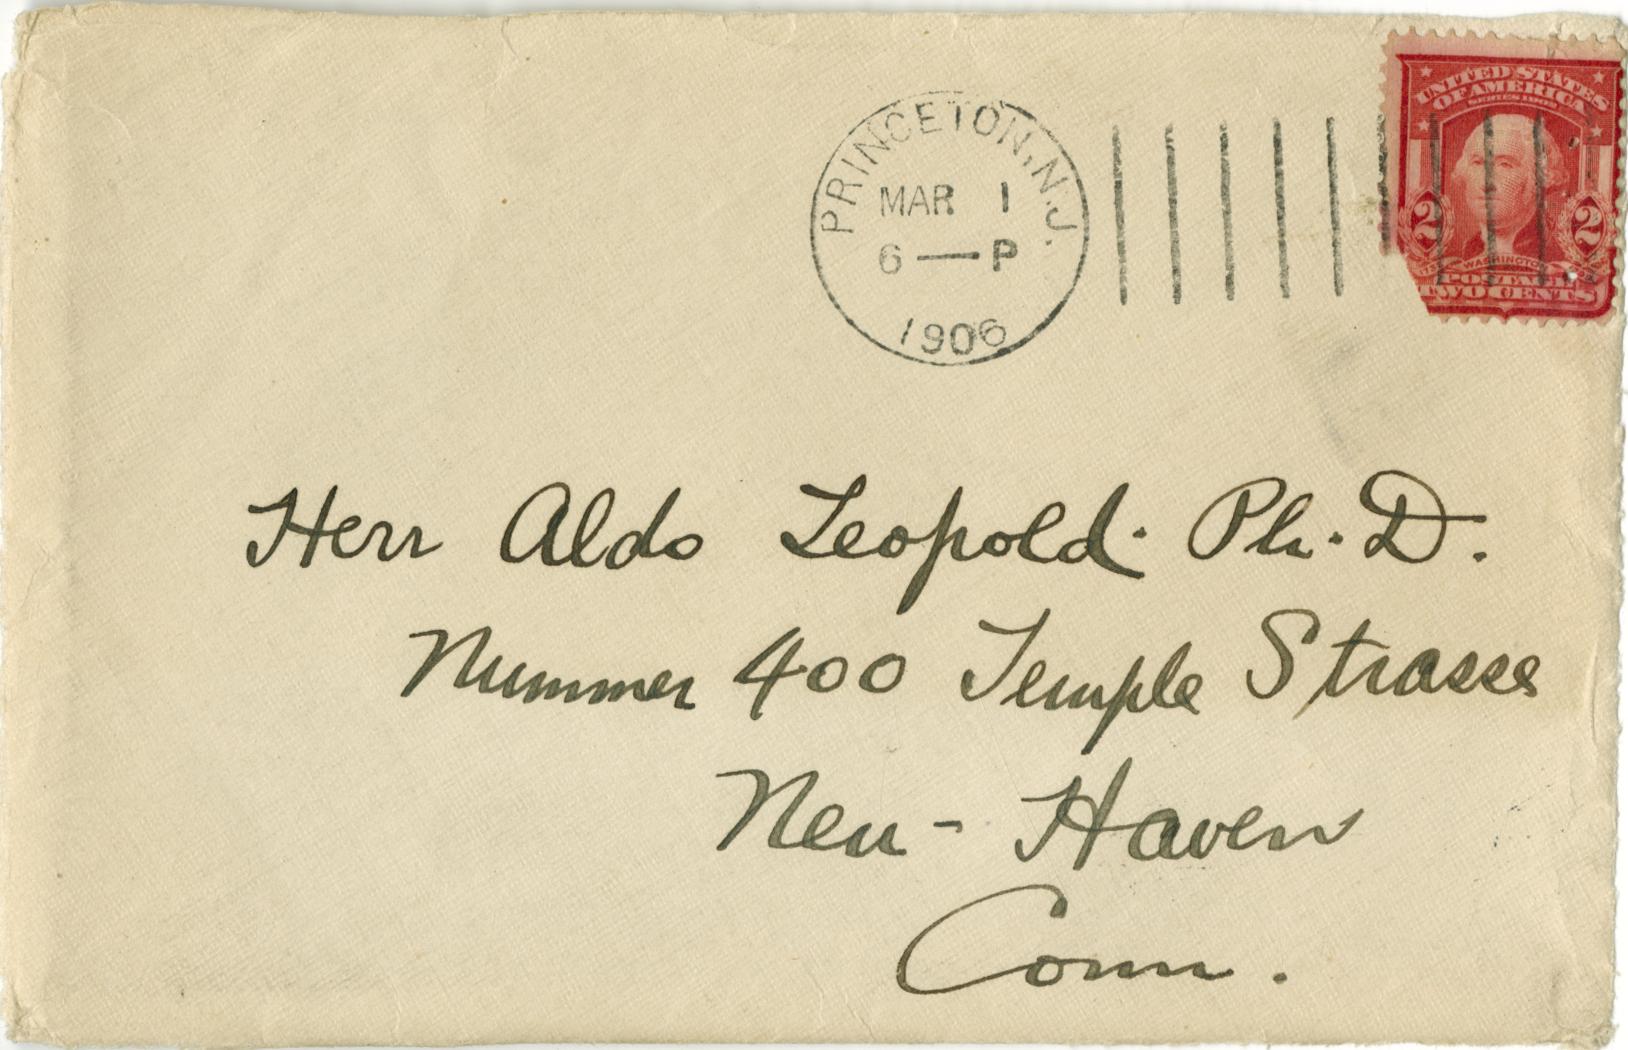 PRINCETON, N.J.
MAR 1
6 — P
1906
UNITED STATES
OF AMERICA
SERIES 1902
2 2
WASHINGTON
POSTAGE
TWO CENTS
Herr Aldo Leopold. Ph. D.
Nummer 400 Temple Strasse
Neu - Haven
Conn.